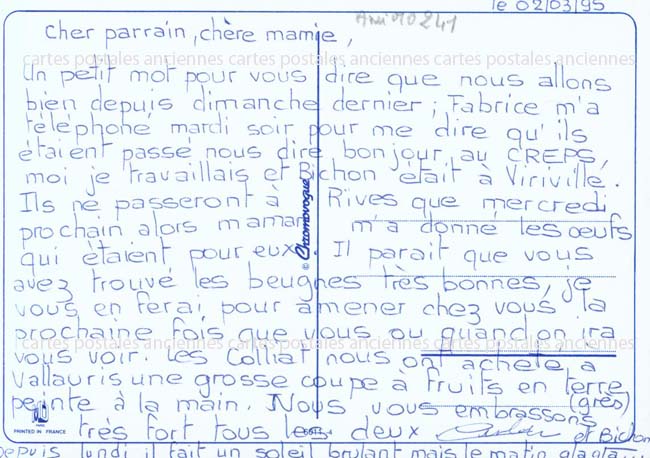 le 02/03/95
Cher parrain, chère mamie,
cartes postales anciennes cartes postales anciennes cartes postales anciennes cartes postales anciennes
Un petit mot pour vous dire que nous allons
bien depuis dimanche dernier ; Fabrice m'a
téléphoné mardi soir pour me dire qu'ils
étaient passé nous dire bonjour au CREPS,
moi je travaillais et Bichon était à Viriville.
Ils ne passeront à Rives que mercredi
prochain alors maman m'a donné les oeufs
qui étaient pour eux. Il parait que vous
avez trouvé les beugnes très bonnes, je
vous en ferai pour amener chez vous la
prochaine fois que vous ou quand on ira
cartes postales anciennes cartes postales anciennes cartes postales anciennes cartes postales anciennes
vous voir. Les Colliat nous ont acheté à
Vallauris une grosse coupe à fruits en terre
(grès)
peinte à la main. Nous vous embrassons
très fort tous les deux
et Bichon
PRINTED IN FRANCE
© Chromovogue
Depuis lundi il fait un soleil brulant mais le matin glagla...